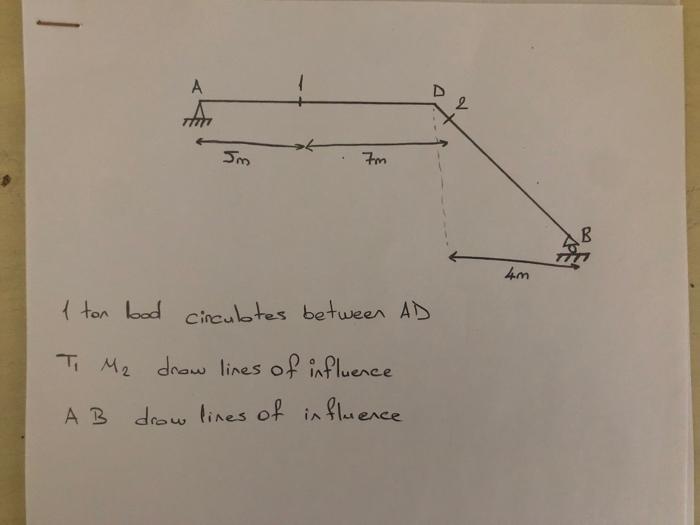 A 1 D 2
5m 7m
B
4m
1 ton load circulates between AD
T1 M2 draw lines of influence
A B draw lines of influence